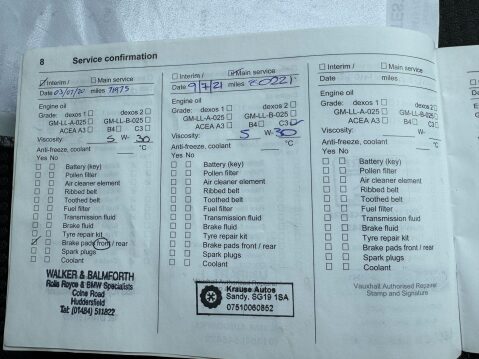 8 Service confirmation
Interim / Main service
Date 03/07/20 miles 71975
Engine oil
Grade: dexos 1 dexos 2
GM-LL-A-025 GM-LL-B-025
ACEA A3 B4 C3
Viscosity: 5 W- 30
Anti-freeze, coolant °C
Yes No
Battery (key)
Pollen filter
Air cleaner element
Ribbed belt
Toothed belt
Fuel filter
Transmission fluid
Brake fluid
Tyre repair kit
Brake pads front / rear
Spark plugs
Coolant
WALKER & BALMFORTH
Rolls Royce & BMW Specialists
Colne Road
Huddersfield
Tel: (01484) 511822
Interim / Main service
Date 9/7/21 miles
Engine oil
Grade: dexos 1 dexos 2
GM-LL-A-025 GM-LL-B-025
ACEA A3 B4 C3
Viscosity: 5 W- 30
Anti-freeze, coolant °C
Yes No
Battery (key)
Pollen filter
Air cleaner element
Ribbed belt
Toothed belt
Fuel filter
Transmission fluid
Brake fluid
Tyre repair kit
Brake pads front / rear
Spark plugs
Coolant
Krause Autos
Sandy, SG19 1SA
07510060852
Interim / Main service
Date miles
Engine oil
Grade: dexos 1 dexos 2
GM-LL-A-025 GM-LL-B-025
ACEA A3 B4 C3
Viscosity: W-
Anti-freeze, coolant °C
Yes No
Battery (key)
Pollen filter
Air cleaner element
Ribbed belt
Toothed belt
Fuel filter
Transmission fluid
Brake fluid
Tyre repair kit
Brake pads front / rear
Spark plugs
Coolant
Vauxhall Authorised Repairer
Stamp and Signature